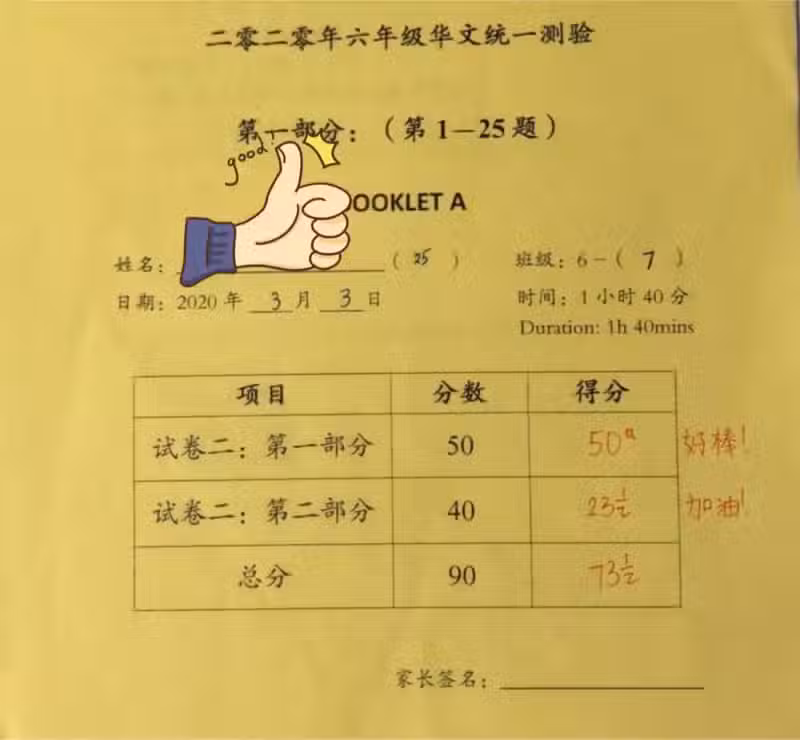 二零二零年六年级华文统一测验
第一部分：（第 1—25 题）
good!
OOKLET A
姓名：（ 25 ） 班级：6 –（ 7 ）
日期：2020 年 3 月 3 日 时间：1 小时 40 分
Duration: 1h 40mins
项目 分数 得分
试卷二：第一部分 50 50 好棒！
试卷二：第二部分 40 23½ 加油！
总分 90 73½
家长签名：